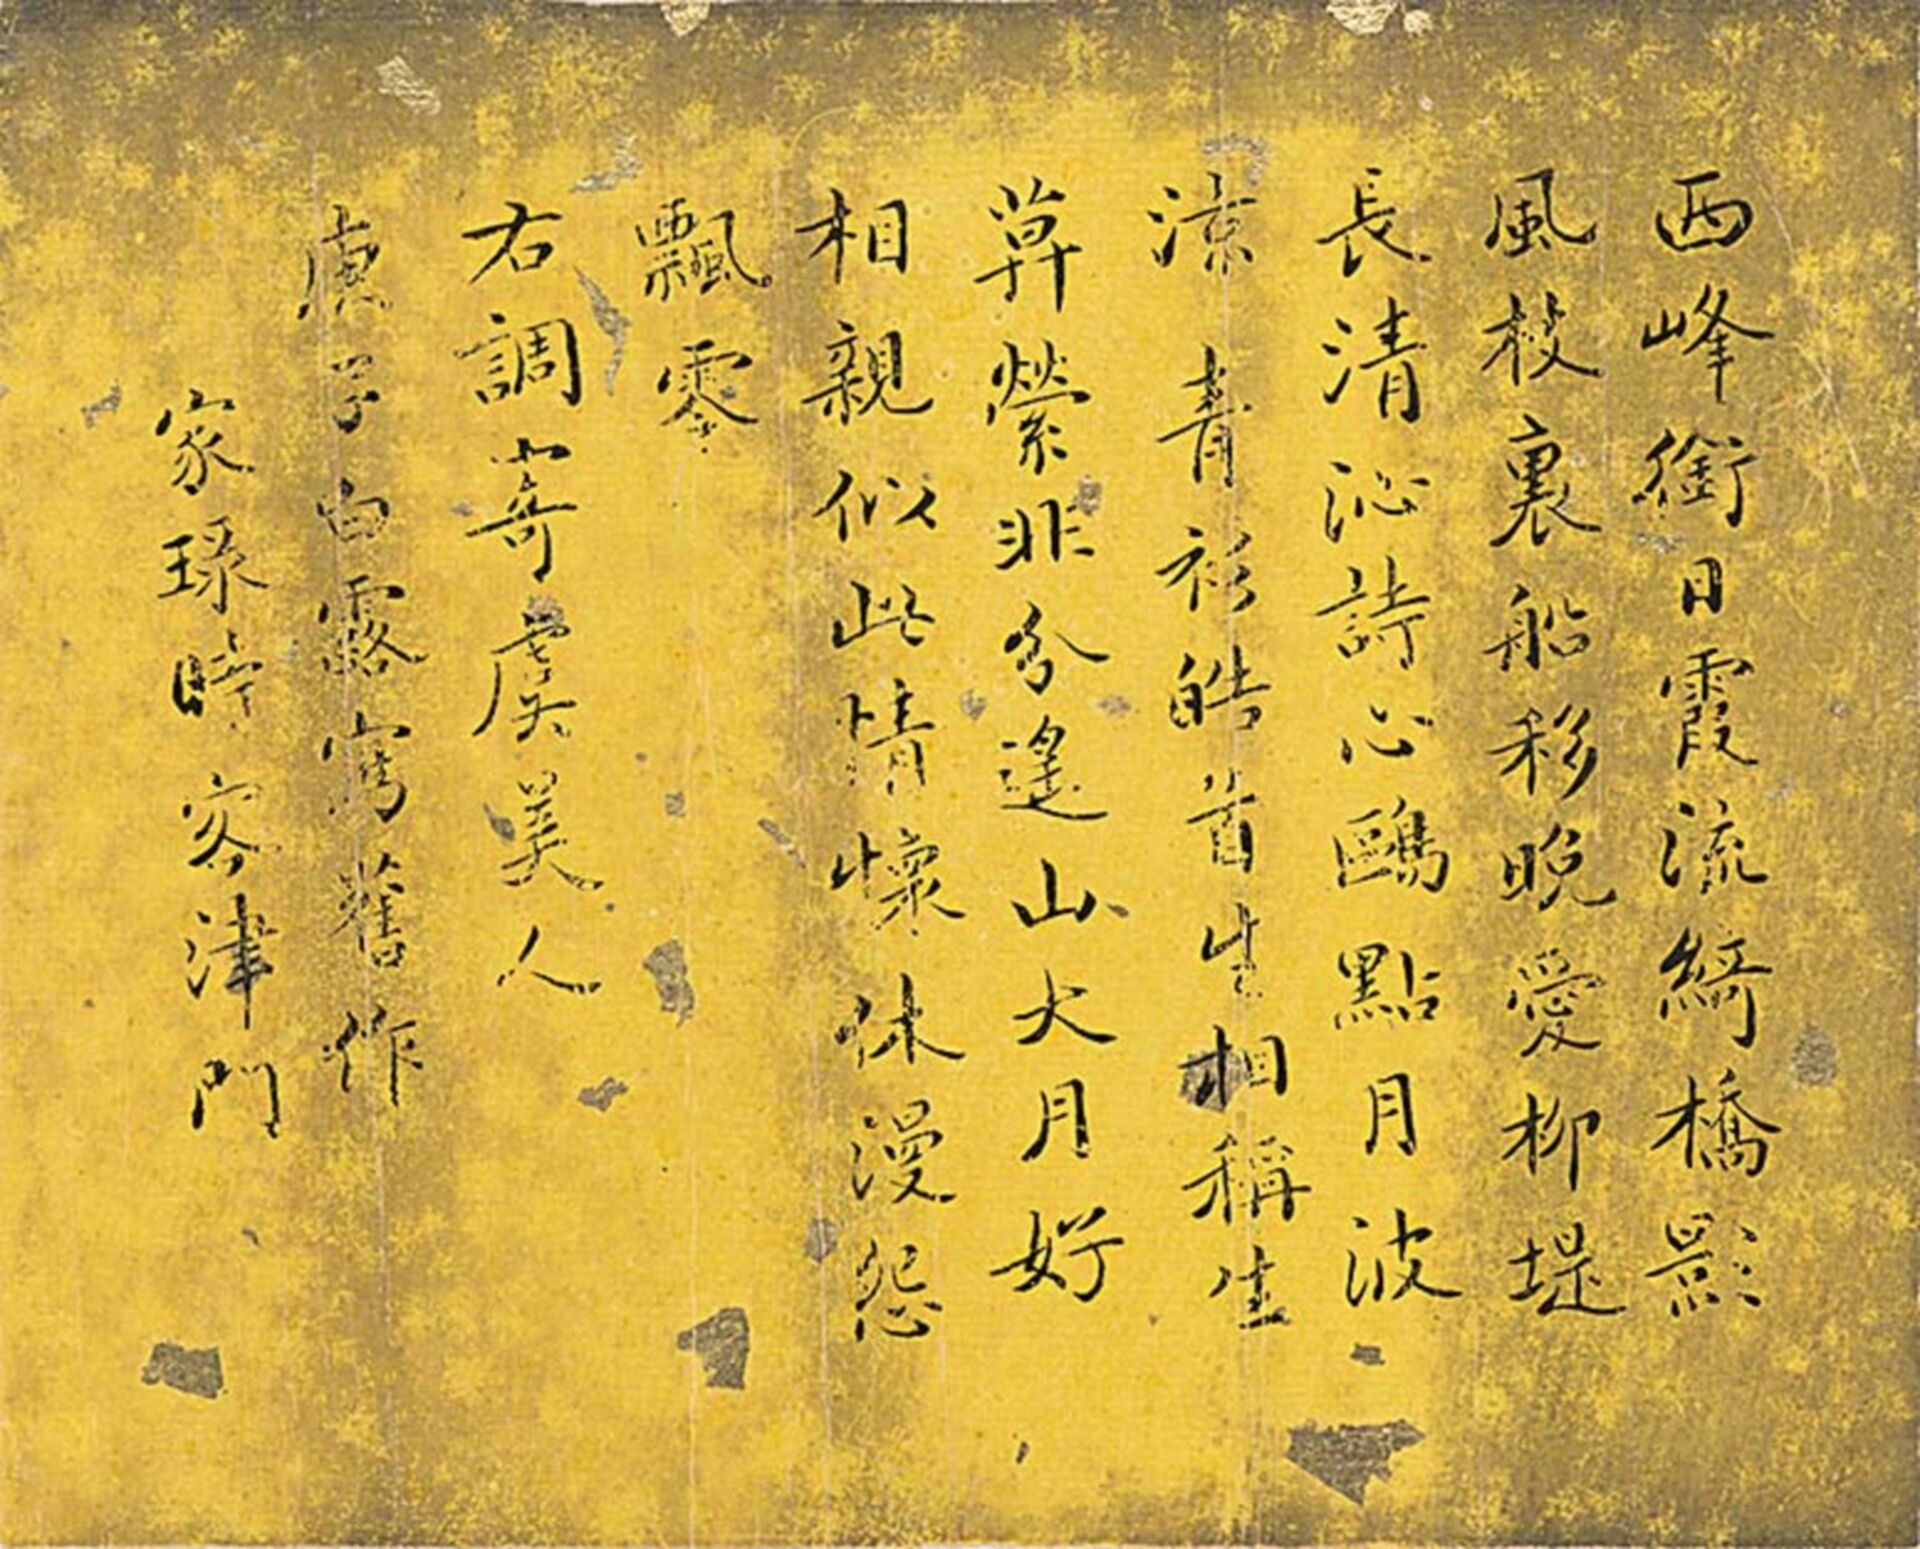 西峰銜日霞流綺橋影
風枝裏船移晚愛柳堤
長清沁詩心鷗點月波
涼 青衫皓首生相稱生
算縈非分遙山大月好
相親似此情懷休漫怨
飄零
右調寄虞美人
庚子白露寫舊作
家琭時客津門